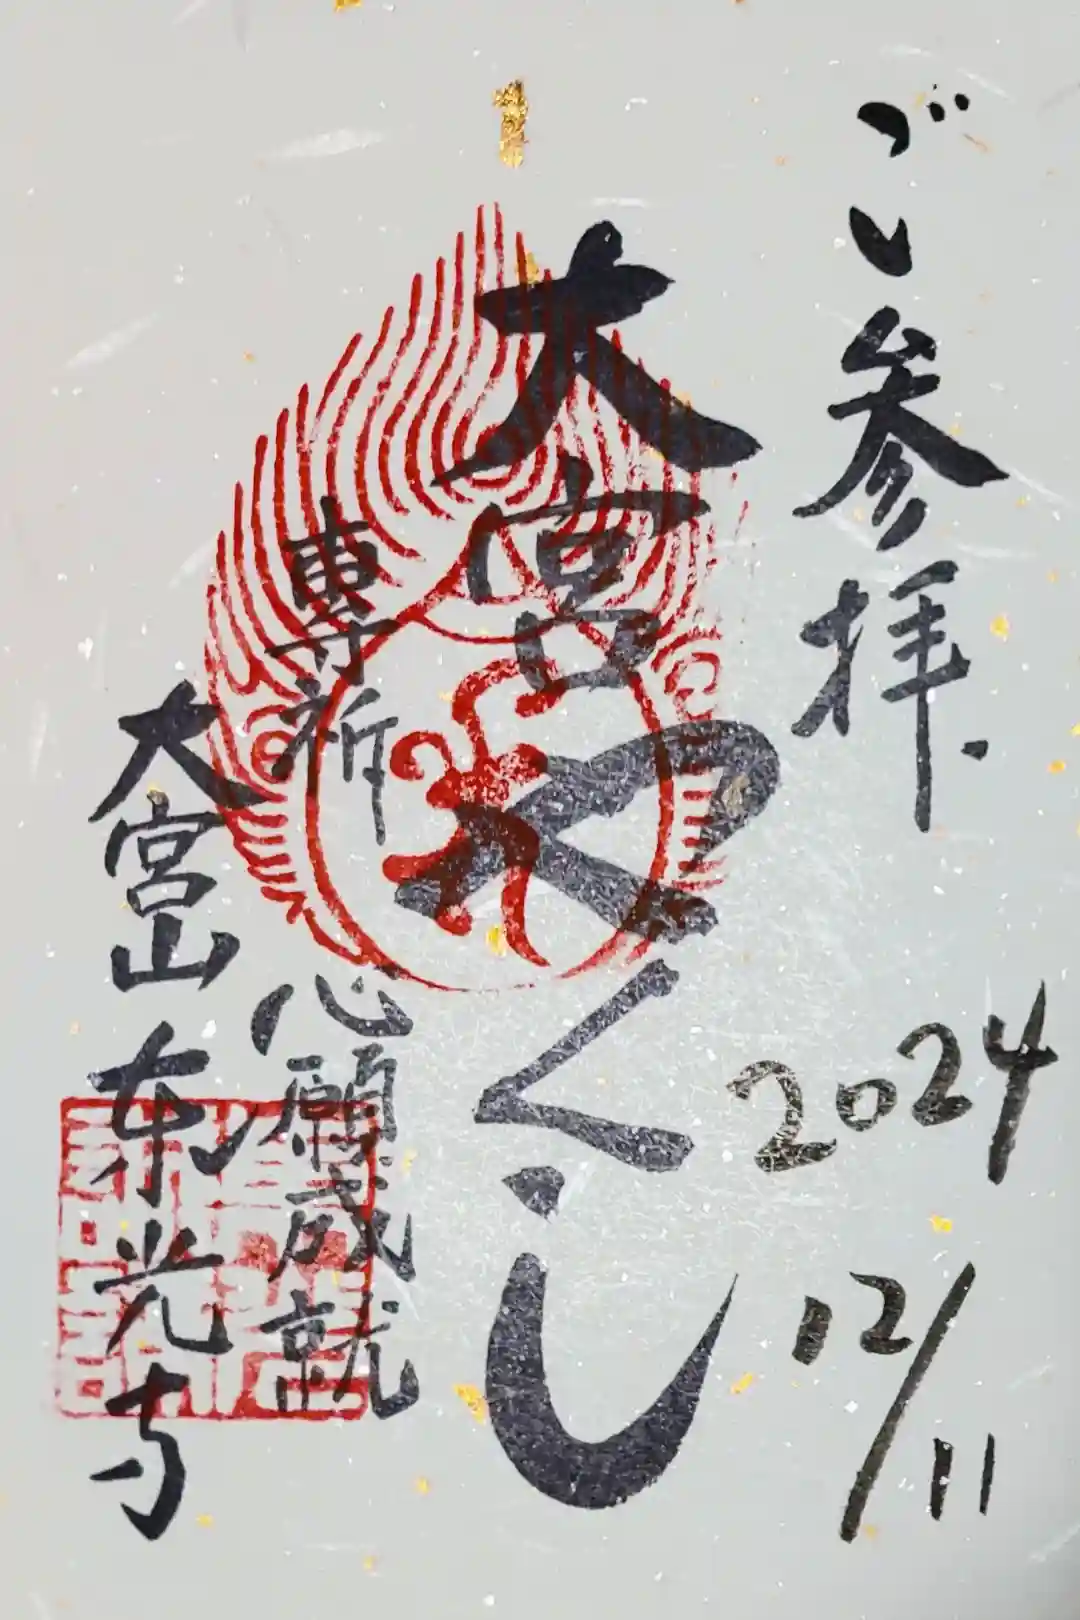 ご参拝.
2024
12/11
大宮やくし
專祈 心願成就
大宮山 東光寺